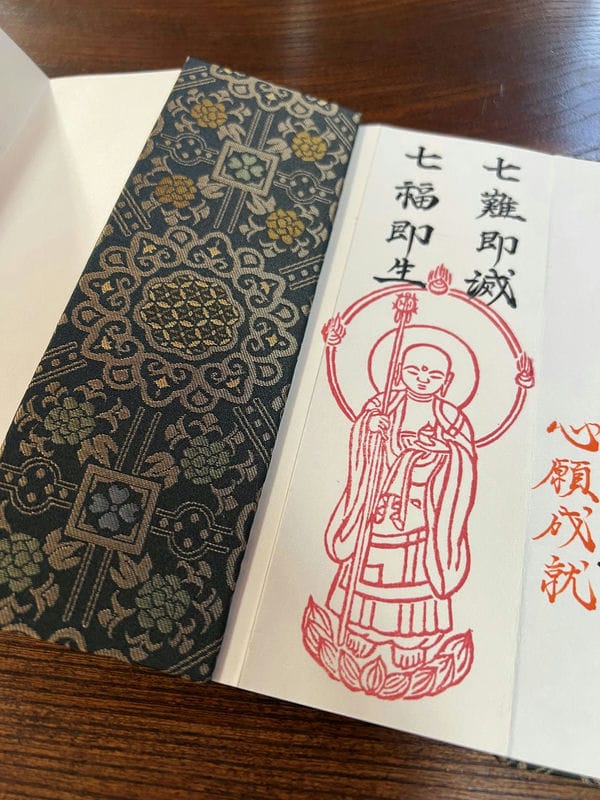 心願成就
七難即滅
七福即生